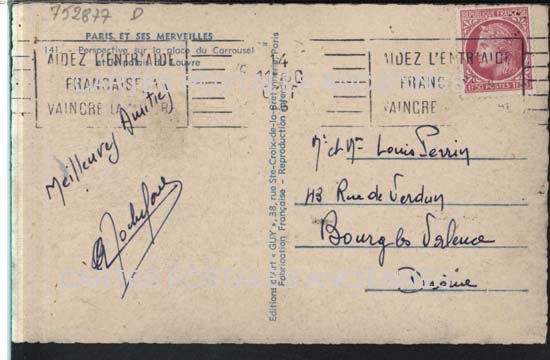 752877 D
PARIS ET SES MERVEILLES
141 - Perspective sur la place du Carrousel
et le palais du Louvre
AIDEZ L'ENTR'AIDE
FRANÇAISE A
VAINCRE LA
Meilleures Amitiés
Editions d'Art « GUY », 38, rue Ste-Croix-de-la-Bretonnerie, Paris
Fabrication Française - Reproduction Interdite
REPUBLIQUE FRANÇAISE
1F50 POSTES 1F50
AIDEZ L'ENTR'AIDE
FRANÇ
VAINCRE
Mr et Mme Louis Perrin
43 Rue de Verdun
Bourg les Valence
Drôme